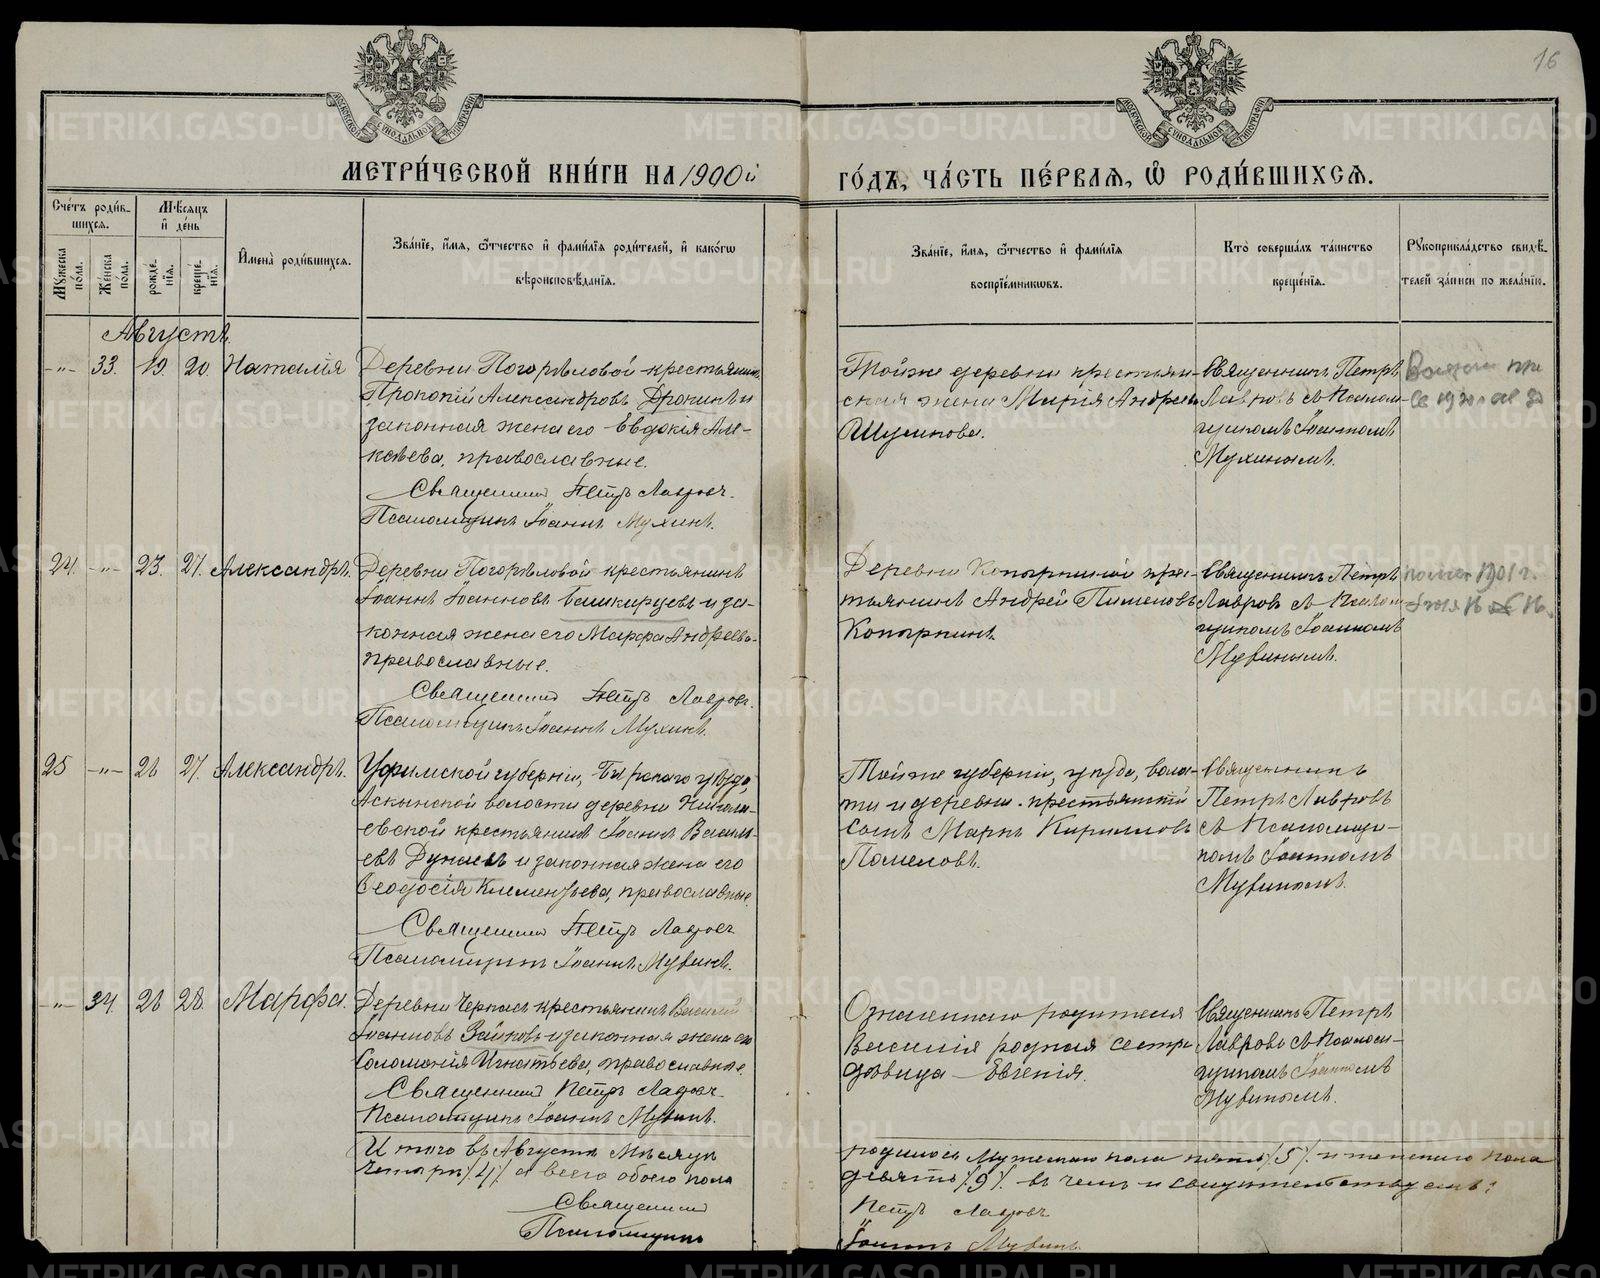 16
МОСКОВСКОЙ СѴНОДАЛЬНОЙ ТИПОГРАФІИ
МОСКОВСКОЙ СѴНОДАЛЬНОЙ ТИПОГРАФІИ
МЕТРИ́ЧЕСКОЙ КНИ́ГИ НА 1900й
ГО́ДЪ, ЧА́СТЬ ПЕ́РВАЯ, Ѡ РОДИ́ВШИХСЯ.
Сче́тъ роди́в-
шихся.
Мѣ́сяцъ
и҆ де́нь
И҆мена̀ роди́вшихся.
Зва́нїе, и҆́мя, ѻ҆́тчество и҆ фами́лїя роди́телей, и҆ како́гѡ
вѣроисповѣ́данїя.
Зва́нїе, и҆́мя, ѻ҆́тчество и҆ фами́лїя
воспрїе́мникѡвъ.
Кто̀ соверша́лъ та́инство
креще́нїя.
Рꙋкоприкла́дство свидѣ́-
телей за́писи по жела́нїю.
Мꙋ́жеска
по́ла.
Же́нска
по́ла.
рожде́-
нїя.
креще́-
нїя.
Августъ
-"- 33. 19. 20. Наталія
Деревни Погорѣловой крестьянинъ
Прокопій Александровъ Дрокинъ и
законная жена его Евдокія Але-
ксѣева, православные.
Священникъ Петръ Лавровъ.
Псаломщикъ Іоаннъ Мухинъ.
Тойже деревни крестьян-
ская жена Марія Андреева
Шумкова.
Священникъ Петръ
Лавровъ съ Псалом-
щикомъ Іоанномъ
Мухинымъ.
24. -"- 23. 27. Александръ.
Деревни Погорѣловой крестьянинъ
Іоаннъ Іоанновъ Башкирцевъ и за-
конная жена его Марфа Андреева,
православные.
Священникъ Петръ Лавровъ.
Псаломщикъ Іоаннъ Мухинъ.
Деревни Копыркиной крес-
тьянинъ Андрей Пименовъ
Копыркинъ.
Священникъ Петръ
Лавровъ съ Псалом-
щикомъ Іоанномъ
Мухинымъ.
1901 г.
25 -"- 26 27. Александръ.
Уфимской губерніи, Бирскаго уѣзда,
Аскынской волости деревни Никола-
евской крестьянинъ Іоаннъ Василь-
евъ Дунаевъ и законная жена его
Ѳеодосія Климентьева, православные.
Священникъ Петръ Лавровъ
Псаломщикъ Іоаннъ Мухинъ.
Тойже губерніи, уѣзда, волос-
ти и деревни крестьянскій
сынъ Маркъ Кирилловъ
Помеловъ.
Священникъ
Петръ Лавровъ
съ Псаломщи-
комъ Іоанномъ
Мухинымъ.
-"- 34. 26 28. Марфа.
Деревни крестьянинъ Василій
Іоанновъ Зайковъ и законная жена его
Соломонія Игнатьева, православные.
Священникъ Петръ Лавровъ.
Псаломщикъ Іоаннъ Мухинъ.
Означеннаго родителя
Василія родная сестра
дѣвица Евгенія.
Священникъ Петръ
Лавровъ съ Псалом-
щикомъ Іоанномъ
Мухинымъ.
Итого въ Августѣ мѣсяцѣ
родилось мужескаго пола пять /5/ и женскаго пола
четыре /4/ а всего обоего пола
девять /9/ въ чемъ и свидѣтельствуемъ:
Священникъ
Петръ Лавровъ
Псаломщикъ
Іоаннъ Мухинъ.
METRIKI.GASO-URAL.RU